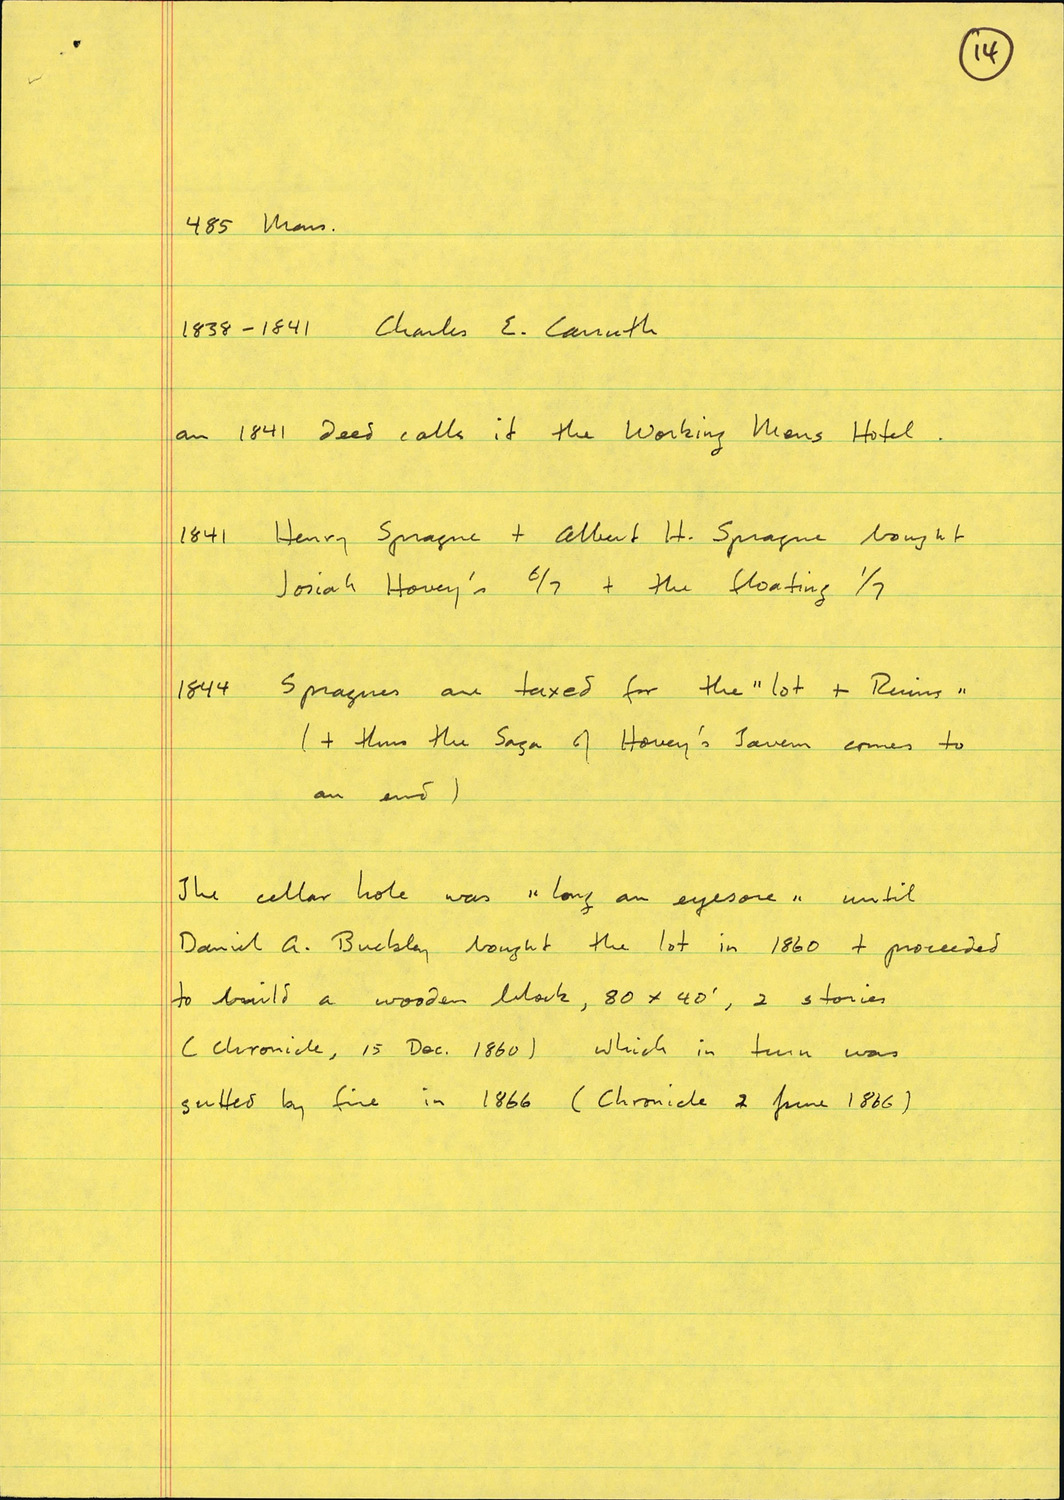 14
485 Mass.
1838-1841 Charles E. Carruth
an 1841 deed calls it the Working Mens Hotel.
1841 Henry Sprague + Albert H. Sprague bought
Josiah Hovey's 6/7 + the floating 1/7
1844 Spragues are taxed for the "lot + Ruins"
(+ thus the Saga of Hovey's Tavern comes to
an end)
The cellar hole was "long an eyesore" until
Daniel A. Buckley bought the lot in 1860 + proceeded
to build a wooden block, 80 x 40', 2 stories
(Chronicle, 15 Dec. 1860) which in turn was
gutted by fire in 1866 (Chronicle 2 June 1866)